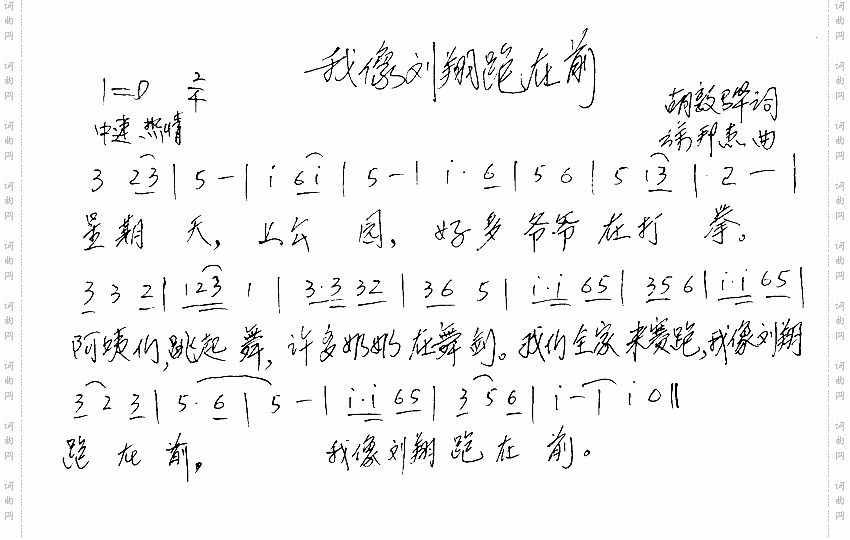 我像刘翔跑在前
1=D 2/4
中速 热情
胡敦骅词
邦杰曲
3 23 | 5 - | i 6i | 5 - | i· 6 | 5 6 | 5 i3 | 2 - |
星期天，上公园，好多爷爷在打拳。
3 3 2 | 123 1 | 3·3 32 | 36 5 | i·i 65 | 35 6 | i·i 65 |
阿姨们，跳起舞，许多奶奶在舞剑。我们全家来赛跑，我像刘翔
3 2 3 | 5· 6 | 5 - | i·i 65 | 3 5 6 | i - | i 0 ‖
跑在前， 我像刘翔跑在前。
词曲网